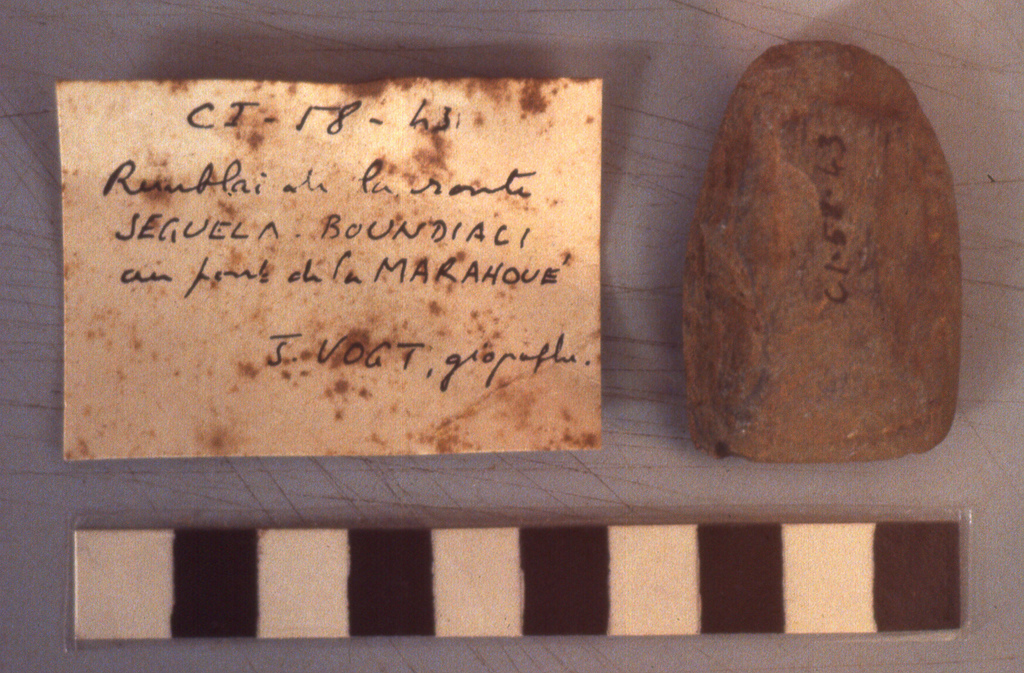 CI - 58 - 43
Remblai de la route
SEGUELA - BOUNDIALI
au pont de la MARAHOUÉ
J. VOGT, géographe.
CI.58.43